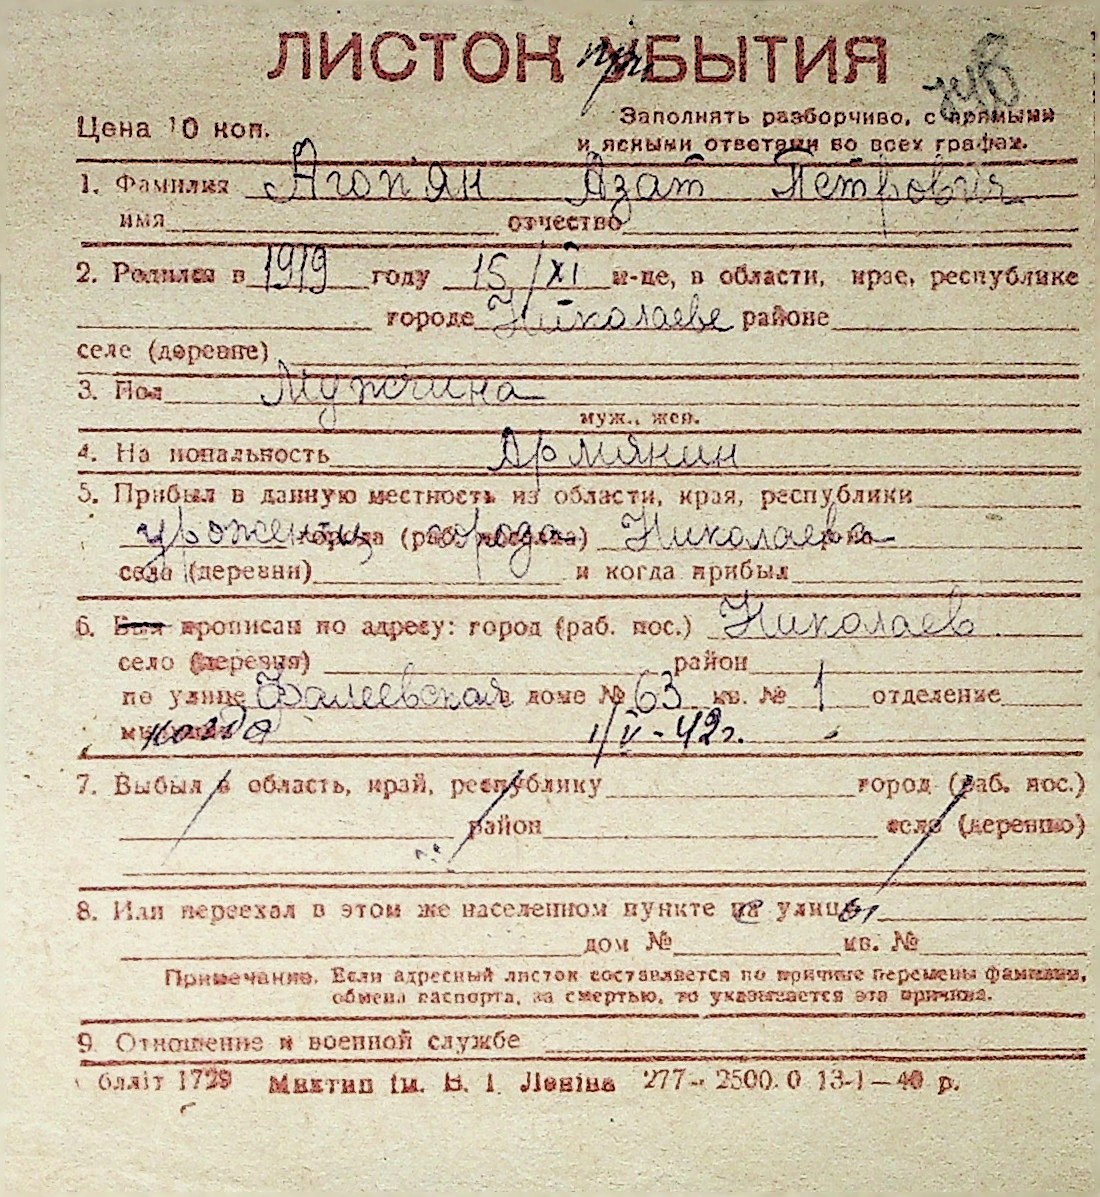 ЛИСТОК при УБЫТИЯ
Цена 10 коп.
Заполнять разборчиво, с прямыми
и ясными ответами во всех графах.
1. Фамилия Агопян Азат Петрович
имя отчество
2. Родился в 1919 году 15/XI м-це, в области, крае, республике
городе Николаеве районе
селе (деревне)
3. Пол Мужчина
муж., жен.
4. Национальность Армянин
5. Прибыл в данную местность из области, края, республики
уроженец города (раб. поселка) города Николаева
села (деревни) и когда прибыл
6. Был прописан по адресу: город (раб. пос.) Николаев
село (деревня) район
по улице Фалеевская в доме № 63 кв. № 1 отделение
когда 1/V-42г.
7. Выбыл в область, край, республику город (раб. пос.)
район село (деревню)
8. Или переехал в этом же населенном пункте с улицы
дом № кв. №
Примечание. Если адресный листок составляется по причине перемены фамилии,
обмена паспорта, за смертью, то указывается эта причина.
9. Отношение к военной службе
блліт 1729 Миктип ім. В. І. Леніна 277-2500.0 13-1-40 р.